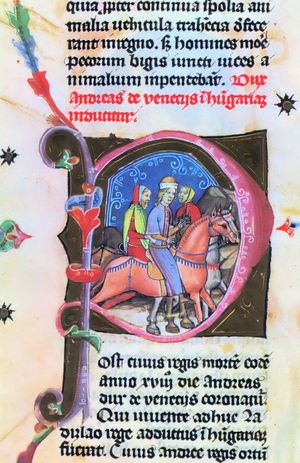 quia, ꝓpter continua spolia ani
malia vehicula trahēcia defece
rant in regno. Sꝫ homines moē
pecorum bigis iuncti vices a
nimalium inpendebāt. Dux
Andreas de venecijs ī hūgariaꝫ
inducitur.
Post cuius regis mortē eodē
anno xviij die Andreas
dux de venecijs coronatur.
Qui vivente adhuc La
dizlao rege adductus ī hūgariā
fuerat. Cuius andree regis ortū